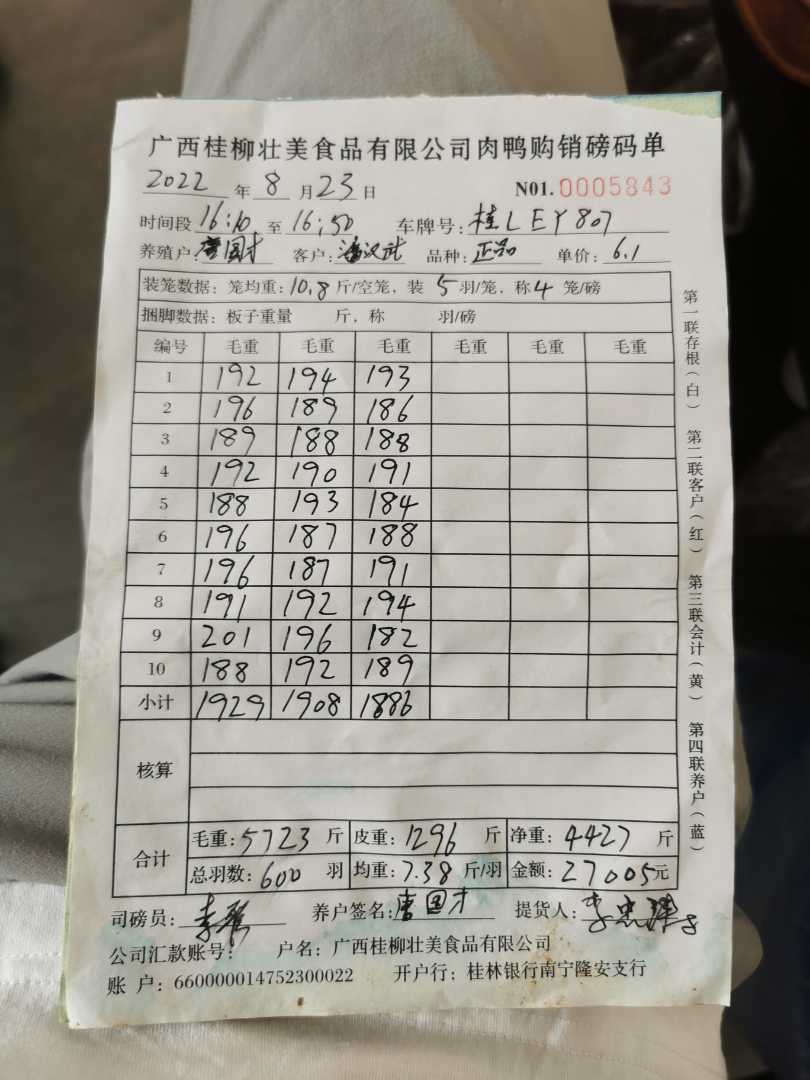 广西桂柳壮美食品有限公司肉鸭购销磅码单
2022 年 8 月 23 日 N01. 0005843
时间段 16:10 至 16:50 车牌号: 桂LEY807
养殖户 唐国才 客户: 潘汉武 品种: 正品 单价: 6.1
装笼数据: 笼均重: 10.8 斤/空笼, 装 5 羽/笼, 称 4 笼/磅
捆脚数据: 板子重量 斤, 称 羽/磅
编号 毛重 毛重 毛重 毛重 毛重 毛重
1 192 194 193
2 196 189 186
3 189 188 188
4 192 190 191
5 188 193 184
6 196 187 188
7 196 187 191
8 191 192 194
9 201 196 182
10 188 192 189
小计 1929 1908 1886
核算
合计
毛重: 5723 斤 皮重: 1296 斤 净重: 4427 斤
总羽数: 600 羽 均重: 7.38 斤/羽 金额: 27005 元
司磅员: 养户签名: 唐国才 提货人:
公司汇款账号: 户名: 广西桂柳壮美食品有限公司
账 户: 660000014752300022 开户行: 桂林银行南宁隆安支行
第一联存根(白) 第二联客户(红) 第三联会计(黄) 第四联养户(蓝)